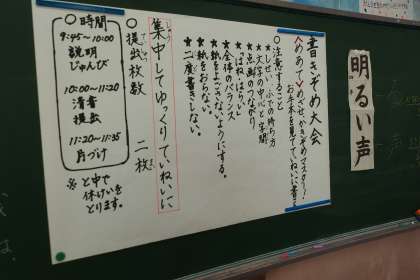 明るい声
書きぞめ大会
<めあて>めざせ、かきぞめマスター!
お手本を見てていねいに書こう
○注意すること
★正しいしせい・ふでの持ち方
★文字の中心と字間
★点画のつながり
★はね・はらい
★全体のバランス
★紙をよごさないようにする。
★紙をおらない。
★二度書きしない。
集中してゆっくりていねいに
○提出枚数 二枚
○時間
9:45〜10:00
説明
じゅんび
10:00〜11:20
清書
提出
11:20〜11:35
片づけ
※と中で
休けいを
とります。